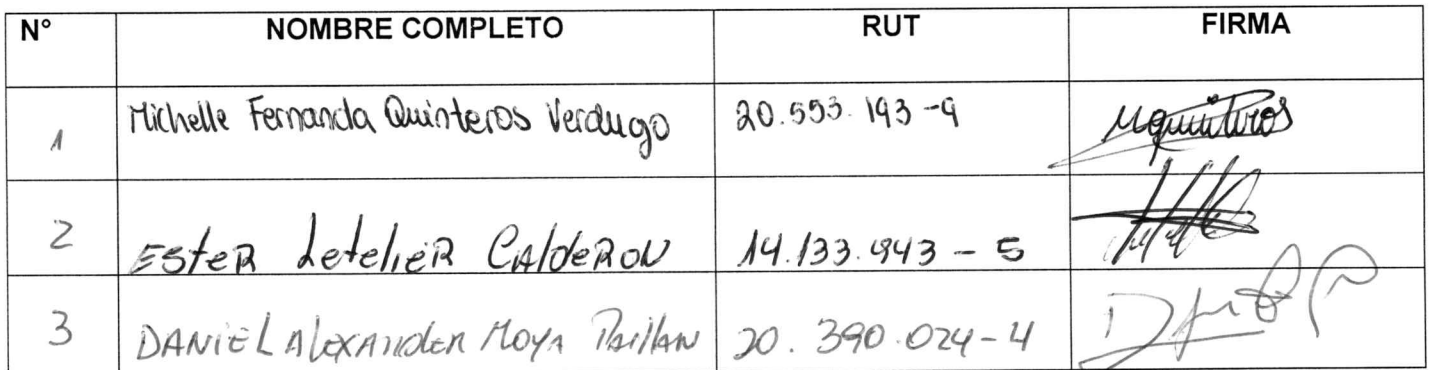 N° NOMBRE COMPLETO RUT FIRMA
1 Michelle Fernanda Quinteros Verdugo 20.553.193-9 Mquinteros
2 Ester Letelier Calderon 14.133.943-5
3 DANIEL Alexander Moya Paillan 20.390.024-4